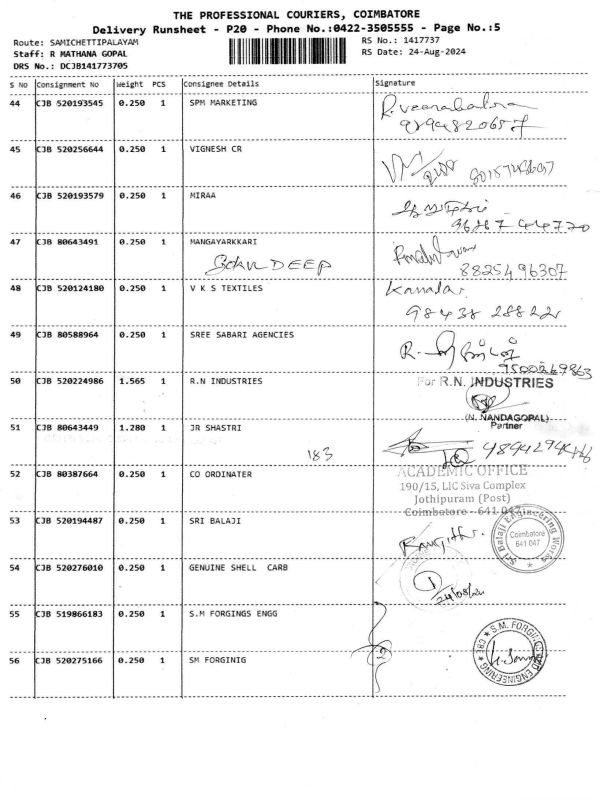 THE PROFESSIONAL COURIERS, COIMBATORE
Delivery Runsheet - P20 - Phone No.:0422-3505555 - Page No.:5
Route: SAMICHETTIPALAYAM
RS No.: 1417737
Staff: R MATHANA GOPAL
RS Date: 24-Aug-2024
DRS No.: DCJB141773705
S No Consignment No Weight PCS Consignee Details Signature
44 CJB 520193545 0.250 1 SPM MARKETING
45 CJB 520256644 0.250 1 VIGNESH CR
46 CJB 520193579 0.250 1 MIRAA
47 CJB 80643491 0.250 1 MANGAYARKKARI
DEEP
8825496307
48 CJB 520124180 0.250 1 V K S TEXTILES
98438 28822
49 CJB 80588964 0.250 1 SREE SABARI AGENCIES
50 CJB 520224986 1.565 1 R.N INDUSTRIES
For R.N. INDUSTRIES
(N. NANDAGOPAL)
Partner
51 CJB 80643449 1.280 1 JR SHASTRI
183
52 CJB 80387664 0.250 1 CO ORDINATER
ACADEMIC OFFICE
190/15, LIC Siva Complex
Jothipuram (Post)
Coimbatore - 641 047
53 CJB 520194487 0.250 1 SRI BALAJI
Sri Balaji Engineering Works
Coimbatore
641 047
54 CJB 520276010 0.250 1 GENUINE SHELL CARB
24/08/24
55 CJB 519866183 0.250 1 S.M FORGINGS ENGG
56 CJB 520275166 0.250 1 SM FORGINIG